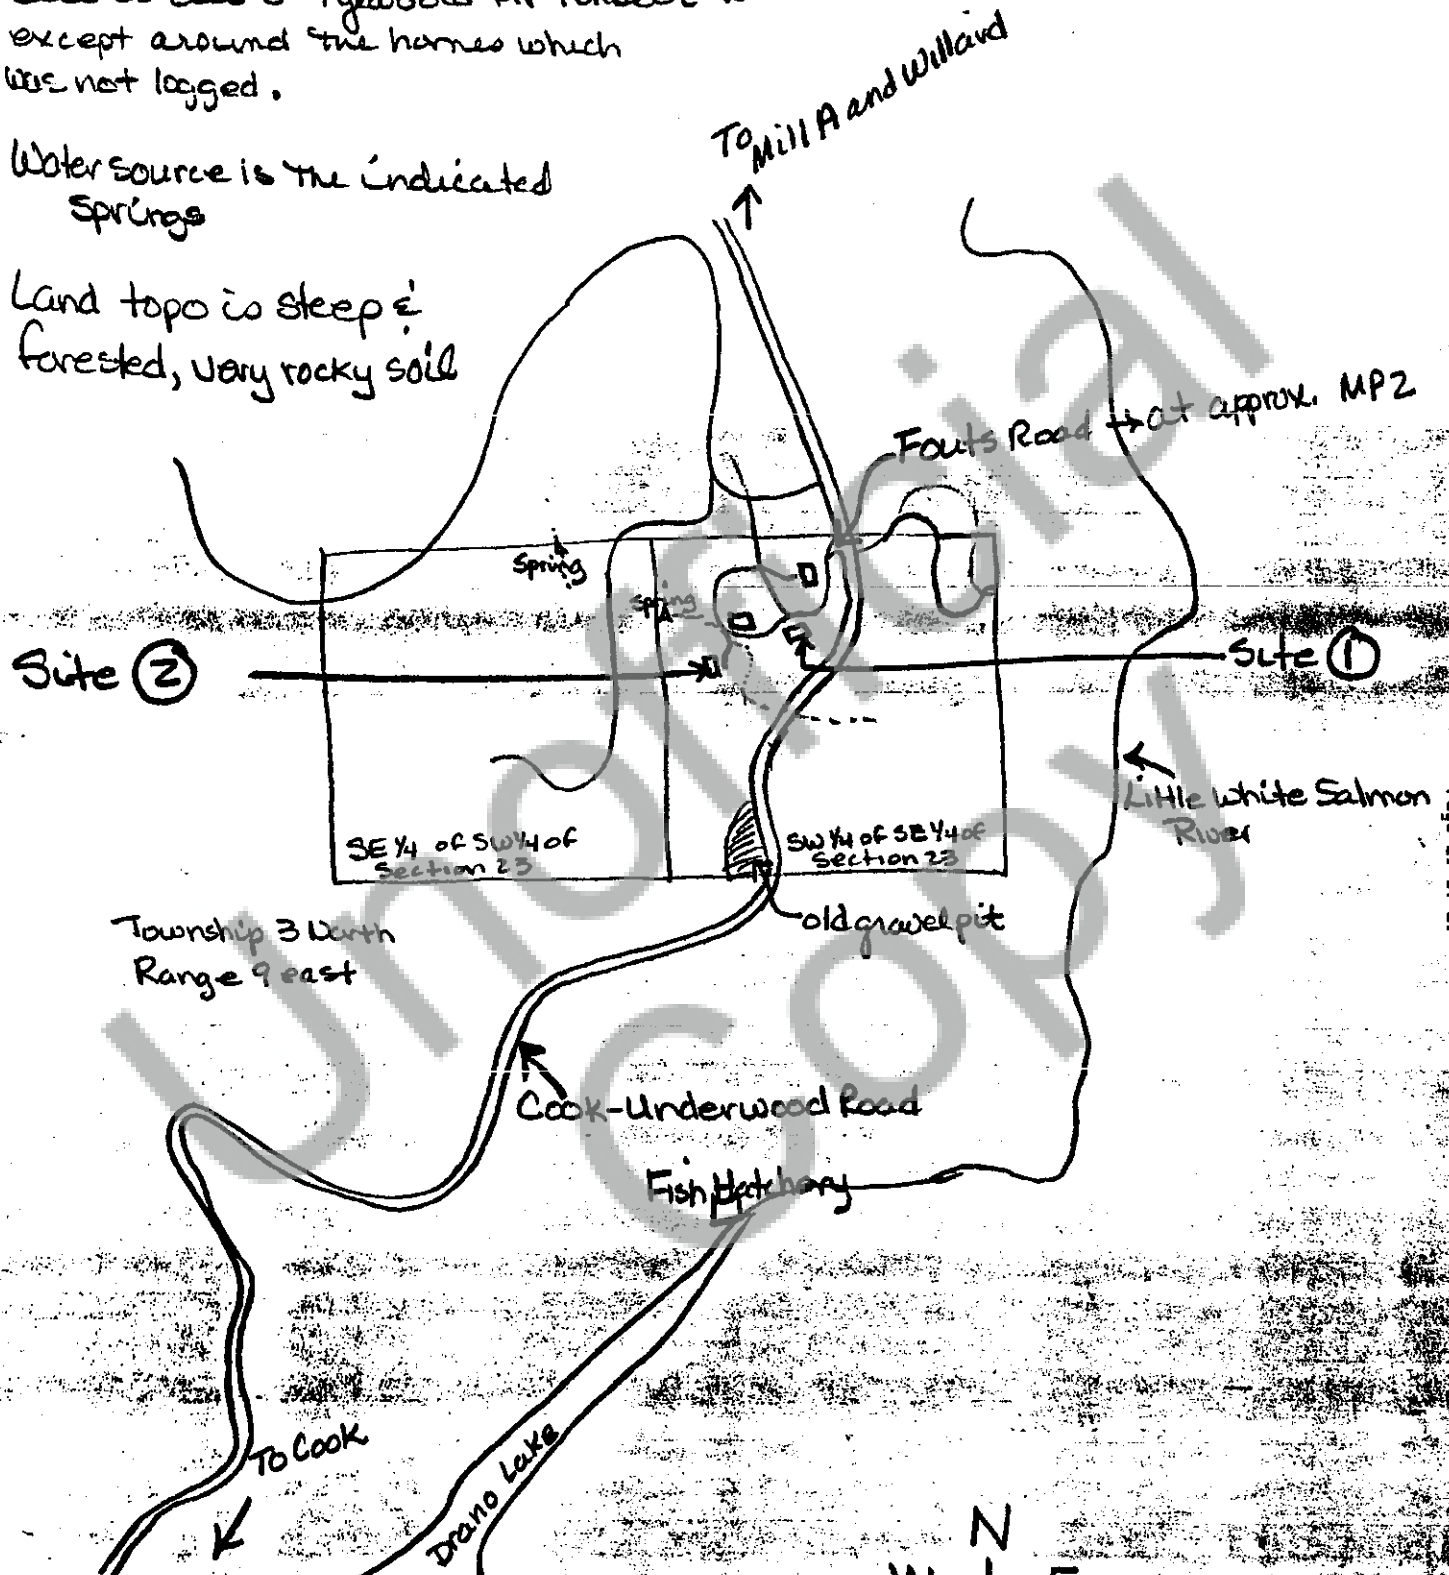 except around the homes which
was not logged.
To Mill A and Willard
Water source is the indicated
Springs
Land topo is steep &
forested, very rocky soil
Fouts Road → at approx. MP2
Spring
Spring
Site 2
Site 1
Little White Salmon
River
SE 1/4 of SW 1/4 of
Section 23
SW 1/4 of SE 1/4 of
Section 23
old gravel pit
Township 3 North
Range 9 east
Cook-Underwood Road
Fish Hatchery
To Cook
Drano Lake
N
Unofficial
Copy